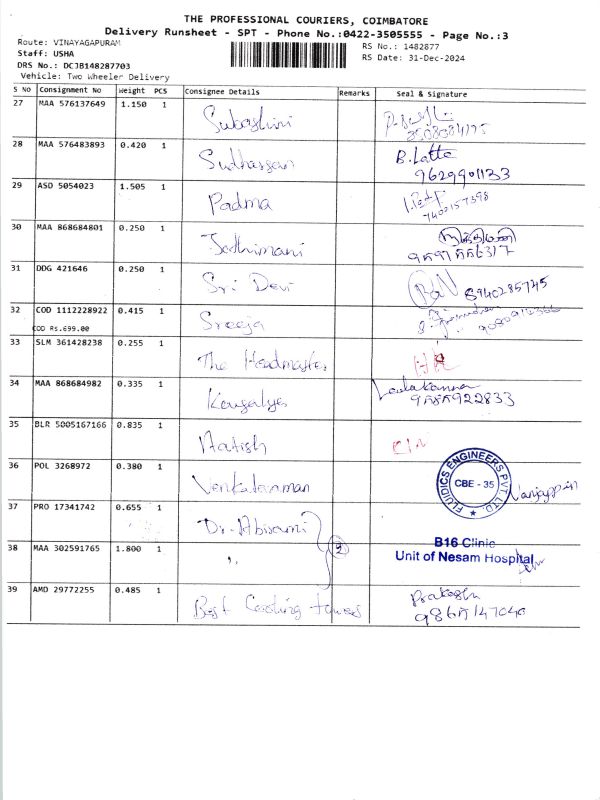 THE PROFESSIONAL COURIERS, COIMBATORE
Delivery Runsheet - SPT - Phone No.:0422-3505555 - Page No.:3
Route: VINAYAGAPURAM
RS No.: 1482877
Staff: USHA
RS Date: 31-Dec-2024
DRS No.: DCJB148287703
Vehicle: Two Wheeler Delivery
S No Consignment No Weight PCS Consignee Details Remarks Seal & Signature
27 MAA 576137649 1.150 1 Subashini
28 MAA 576483893 0.420 1 Sudhassan B.Latte
96299901133
29 ASD 5054023 1.505 1 Padma
7400157398
30 MAA 868684801 0.250 1 Jothimani
31 DDG 421646 0.250 1 Sri Devi 8940285745
32 COD 1112228922 0.415 1 Sreeja
COD Rs.699.00
33 SLM 361428238 0.255 1 The Headmaster
34 MAA 868684982 0.335 1 Kousalya
35 BLR 5005167166 0.835 1 Natish
36 POL 3268972 0.380 1 Venkataraman FLUIDICS ENGINEERS PVT. LTD. CBE - 35 Nanjappan
37 PRO 17341742 0.655 1 Dr. Abisami
38 MAA 302591765 1.800 1 " 2 B16 Clinic
Unit of Nesam Hospital
39 AMD 29772255 0.485 1 Best Cooling towers Prakash